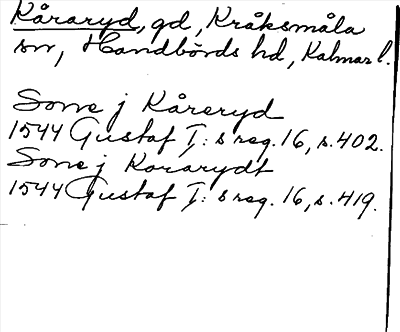 Kåraryd, gd, Kråksmåla
sn, Handbörds hd, Kalmar l.
Sone j Kåreryd
1544 Gustaf I: s reg. 16, s. 402.
Sone j Korarydt
1544 Gustaf I: s reg. 16, s. 419.